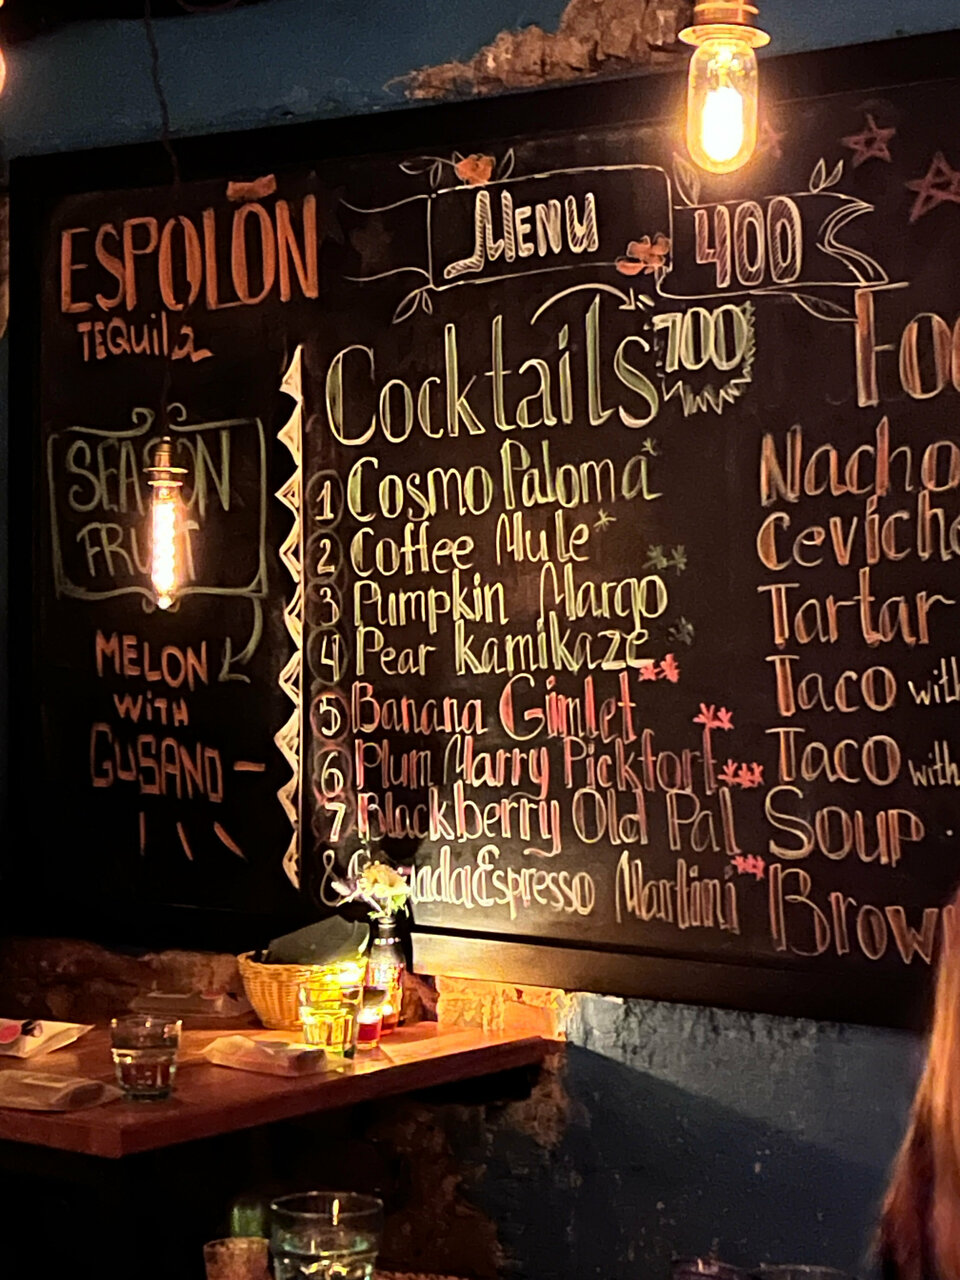 ESPOLÒN
TEQUILA
SEASON
FRUIT
MELON
WITH
GUSANO –
MENU
400
Cocktails 700
1 Cosmo Paloma*
2 Coffee Mule*
3 Pumpkin Margo**
4 Pear Kamikaze*
5 Banana Gimlet**
6 Plum Marry Pickfort**
7 Blackberry Old Pal***
8 Espresso Martini**
Foo
Nacho
Ceviche
Tartar
Taco with
Taco with
Soup
Brow